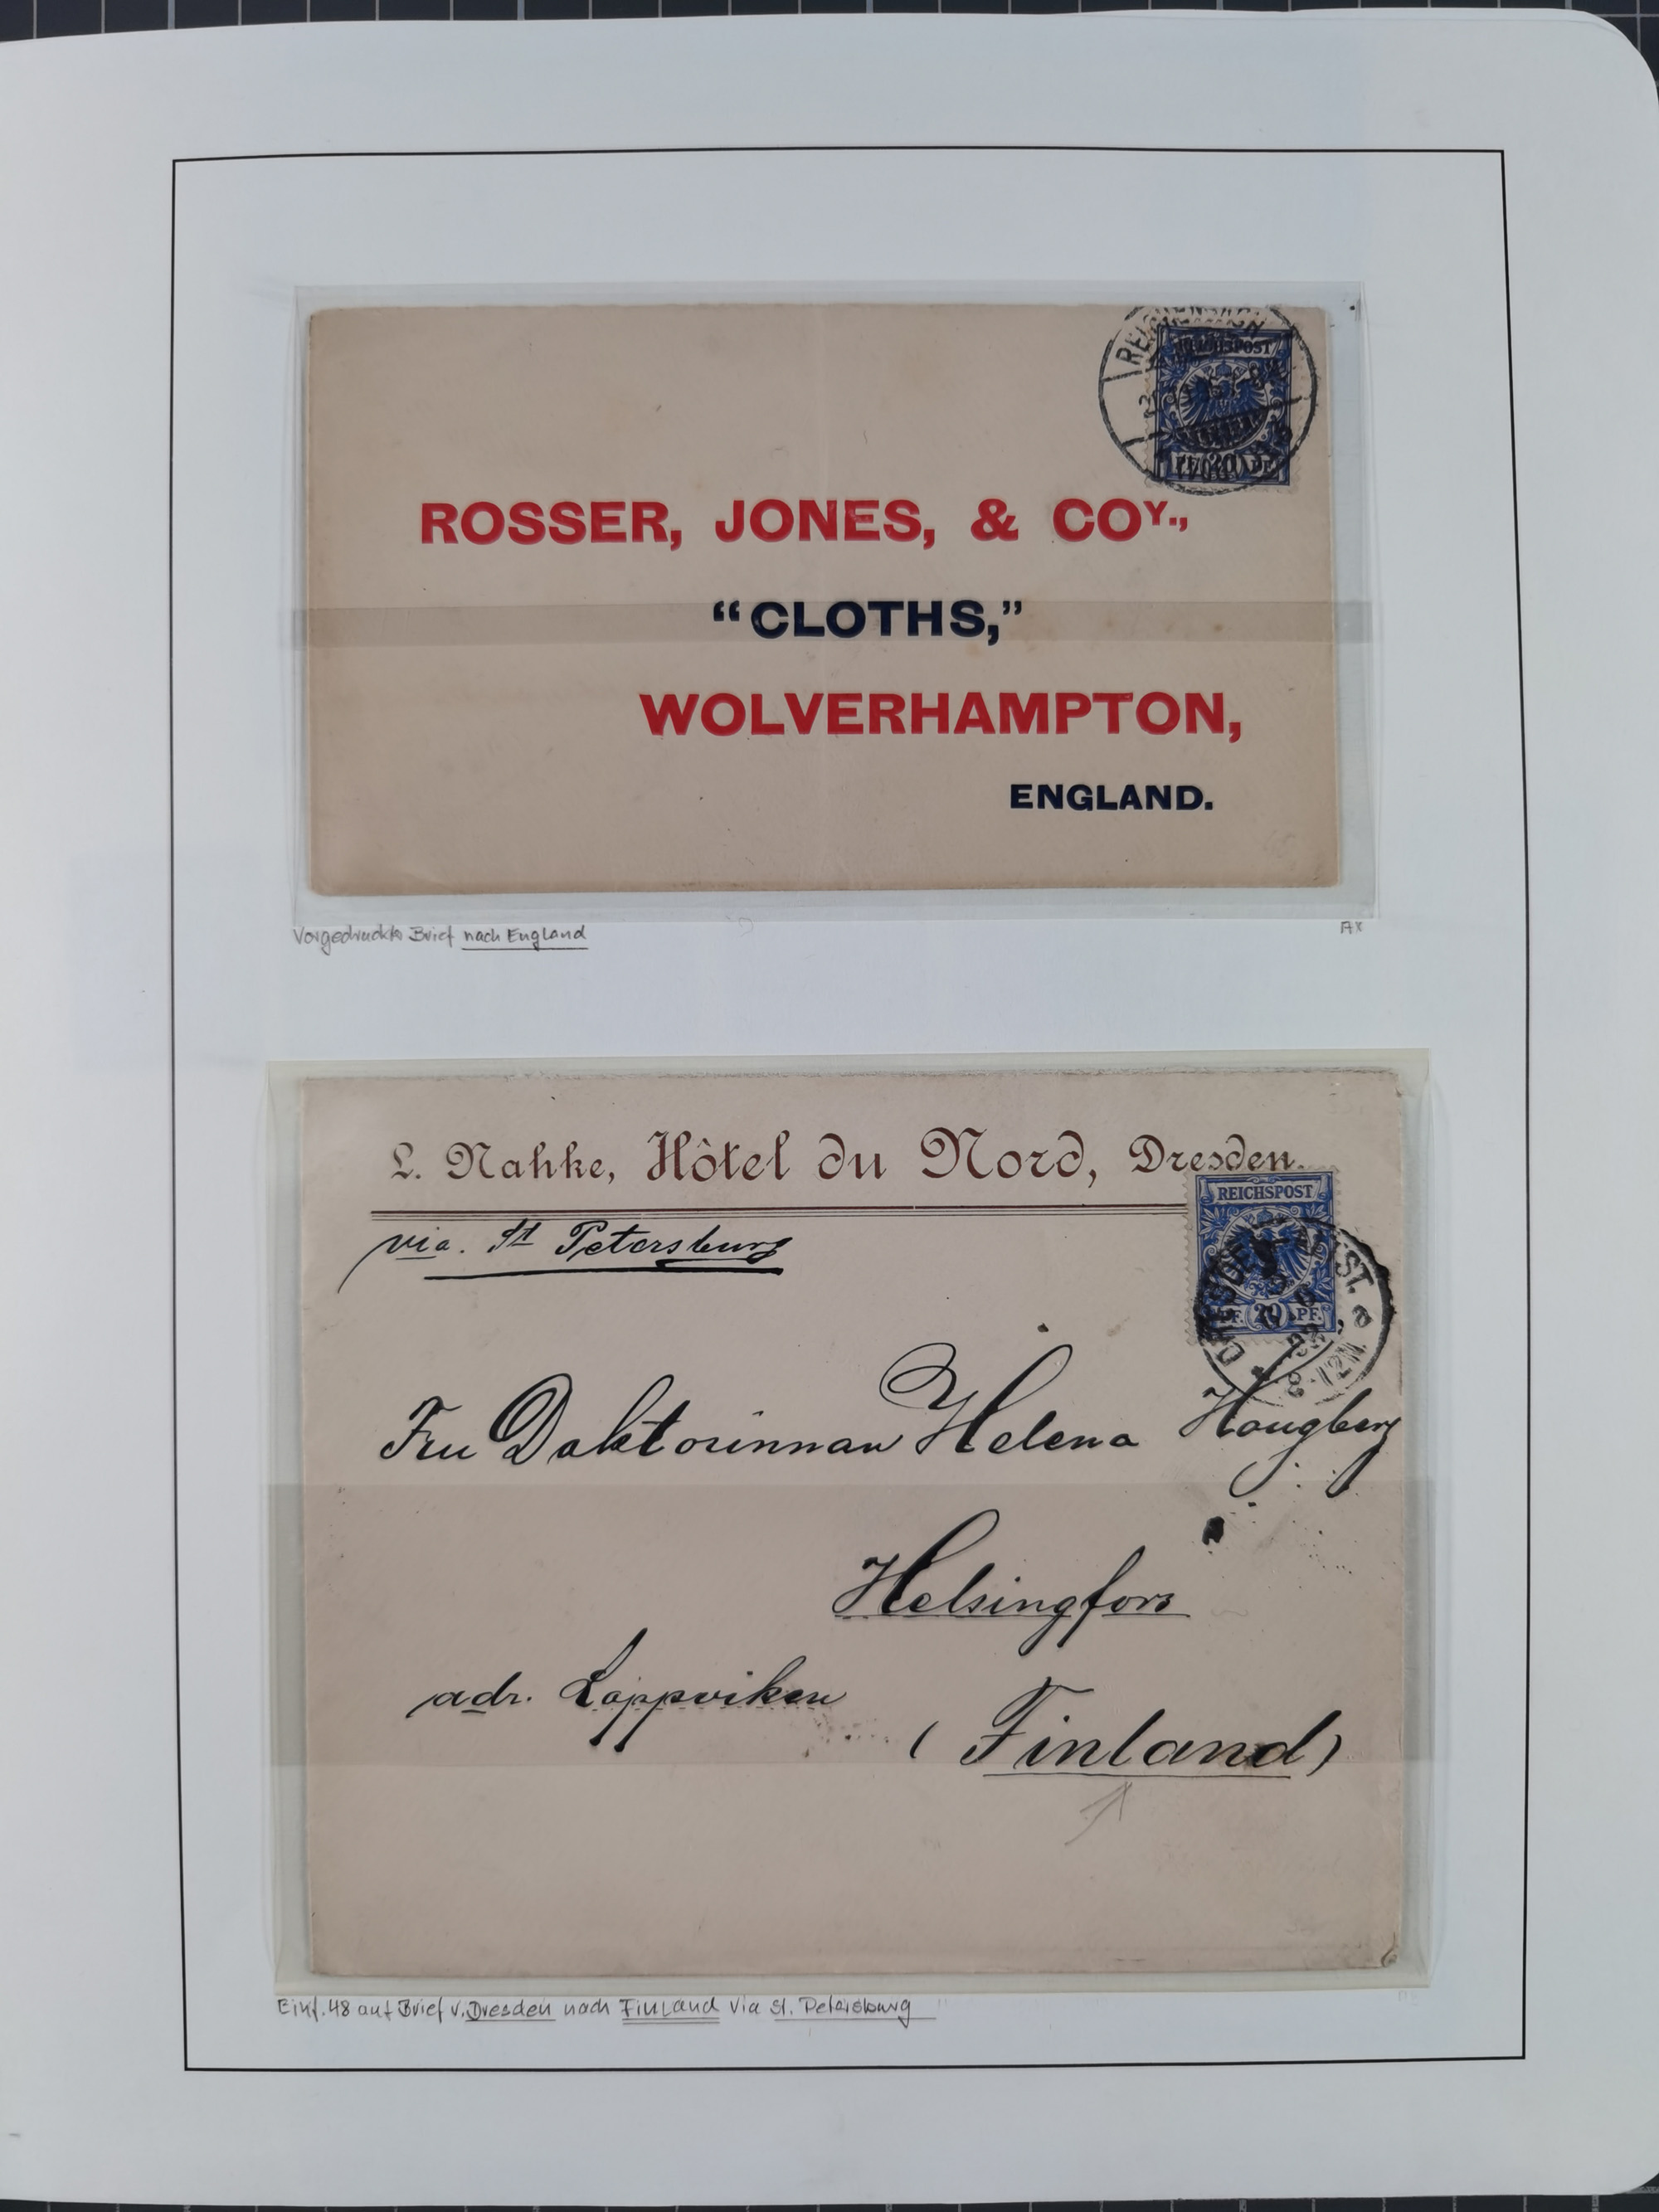 REICHSPOST
20 PF.
ROSSER, JONES, & COY.,
“CLOTHS,”
WOLVERHAMPTON,
ENGLAND.
Vorgedruckter Brief nach England
L. Nahke, Hôtel du Nord, Dresden.
REICHSPOST
PF. 20 PF.
via. St Petersburg
Fru Doktorinnan Helena Hougberg
Helsingfors
adr. Lappviken
(Finland)
Einf. 48 auf Brief v. Dresden nach FINLAND via St. Petersburg